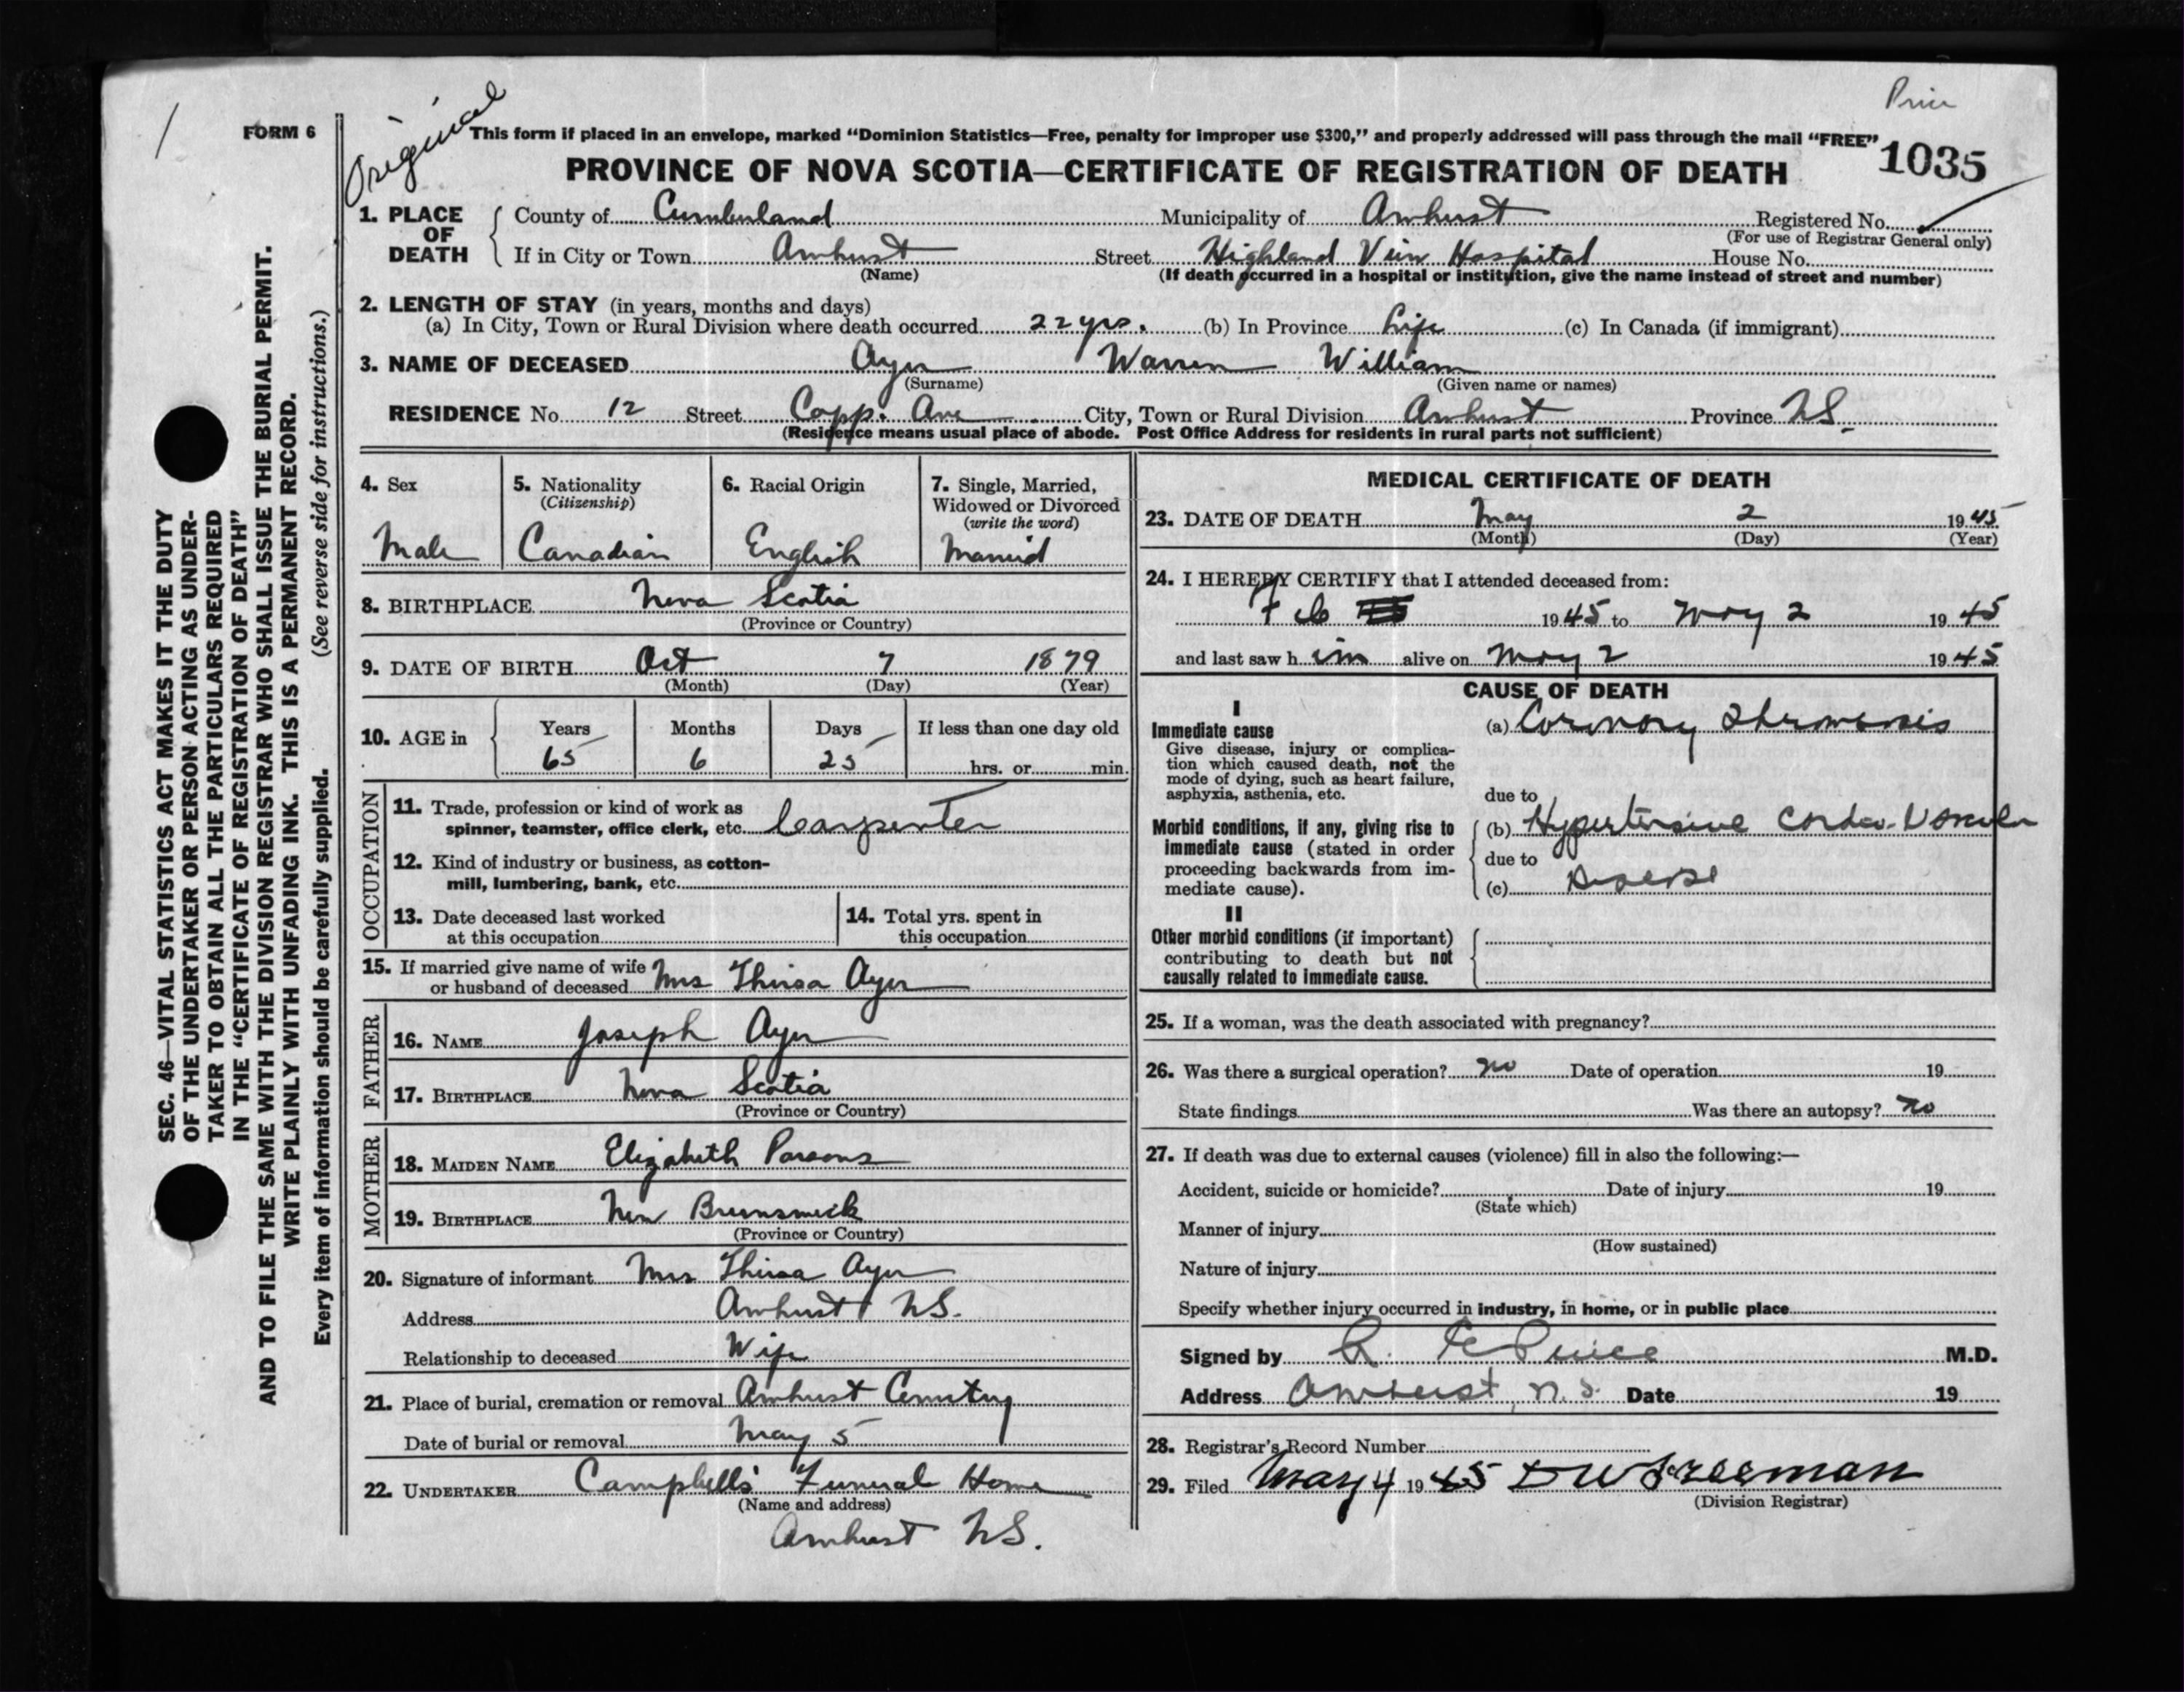 Price
Original
FORM 6
This form if placed in an envelope, marked "Dominion Statistics—Free, penalty for improper use $300," and properly addressed will pass through the mail "FREE"
1035
PROVINCE OF NOVA SCOTIA—CERTIFICATE OF REGISTRATION OF DEATH
1. PLACE OF DEATH
County of Cumberland Municipality of Amherst Registered No.
(For use of Registrar General only)
If in City or Town Amherst Street Highland View Hospital House No.
(Name) (If death occurred in a hospital or institution, give the name instead of street and number)
2. LENGTH OF STAY (in years, months and days)
(a) In City, Town or Rural Division where death occurred 22 yrs. (b) In Province Life (c) In Canada (if immigrant)
3. NAME OF DECEASED Ayer Warren William
(Surname) (Given name or names)
RESIDENCE No. 12 Street Copp. Ave City, Town or Rural Division Amherst Province N.S.
(Residence means usual place of abode. Post Office Address for residents in rural parts not sufficient)
4. Sex
Male
5. Nationality
(Citizenship)
Canadian
6. Racial Origin
English
7. Single, Married,
Widowed or Divorced
(write the word)
Married
8. BIRTHPLACE Nova Scotia
(Province or Country)
9. DATE OF BIRTH Oct 7 1879
(Month) (Day) (Year)
10. AGE in
Years Months Days If less than one day old
65 6 25 hrs. or min.
OCCUPATION
11. Trade, profession or kind of work as
spinner, teamster, office clerk, etc. Carpenter
12. Kind of industry or business, as cotton-
mill, lumbering, bank, etc.
13. Date deceased last worked
at this occupation
14. Total yrs. spent in
this occupation
15. If married give name of wife
or husband of deceased Mrs Thirsa Ayer
FATHER
16. NAME Joseph Ayer
17. BIRTHPLACE Nova Scotia
(Province or Country)
MOTHER
18. MAIDEN NAME Elizabeth Parsons
19. BIRTHPLACE New Brunswick
(Province or Country)
20. Signature of informant Mrs Thirsa Ayer
Address Amherst NS.
Relationship to deceased Wife
21. Place of burial, cremation or removal Amherst Cemetery
Date of burial or removal May 5
22. UNDERTAKER Campbells' Funeral Home
(Name and address)
Amherst NS.
MEDICAL CERTIFICATE OF DEATH
23. DATE OF DEATH May 2 1945
(Month) (Day) (Year)
24. I HEREBY CERTIFY that I attended deceased from:
Feb 1945 to May 2 1945
and last saw h im alive on May 2 1945
CAUSE OF DEATH
I
Immediate cause
Give disease, injury or complica-
tion which caused death, not the
mode of dying, such as heart failure,
asphyxia, asthenia, etc.
(a) Coronary Thrombosis
due to
Morbid conditions, if any, giving rise to
immediate cause (stated in order
proceeding backwards from im-
mediate cause).
(b) Hypertensive Cardio-Vascular
due to
(c) Disease
II
Other morbid conditions (if important)
contributing to death but not
causally related to immediate cause.
25. If a woman, was the death associated with pregnancy?
26. Was there a surgical operation? no Date of operation 19
State findings Was there an autopsy? no
27. If death was due to external causes (violence) fill in also the following:—
Accident, suicide or homicide? Date of injury 19
(State which)
Manner of injury
(How sustained)
Nature of injury
Specify whether injury occurred in industry, in home, or in public place
Signed by Price M.D.
Address Amherst, N.S. Date 19
28. Registrar's Record Number
29. Filed May 4 1945 D W Freeman
(Division Registrar)
SEC. 46—VITAL STATISTICS ACT MAKES IT THE DUTY
OF THE UNDERTAKER OR PERSON ACTING AS UNDER-
TAKER TO OBTAIN ALL THE PARTICULARS REQUIRED
IN THE "CERTIFICATE OF REGISTRATION OF DEATH"
AND TO FILE THE SAME WITH THE DIVISION REGISTRAR WHO SHALL ISSUE THE BURIAL PERMIT.
WRITE PLAINLY WITH UNFADING INK. THIS IS A PERMANENT RECORD.
Every item of information should be carefully supplied. (See reverse side for instructions.)